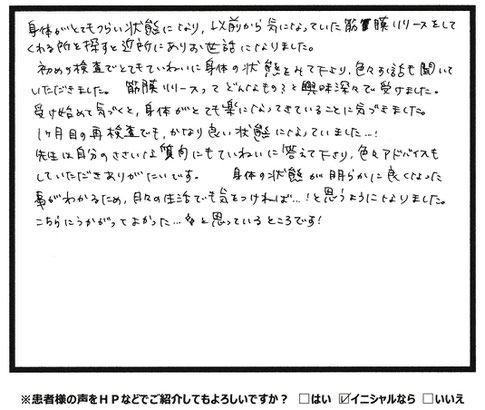 身体がとてもつらい状態になり、以前から気になっていた筋膜リリースをして
くれる所を探すと近所にありお世話になりました。
初めの検査でとてもていねいに身体の状態をみて下さり、色々お話も聞いて
いただきました。 筋膜リリースってどんなもの?と興味深々で受けました。
受け始めて気づくと、身体がとても楽になってきていることに気づきました。
1ヶ月目の再検査でも、かなり良い状態になっていました…!
先生は自分のささいな質問にもていねいに答えて下さり、色々アドバイスも
していただきありがたいです。 身体の状態が明らかに良くなった
事がわかるため、日々の生活でも気をつければ…!と思うようになりました。
こちらにうかがってよかった…と思っているところです!
※患者様の声をHPなどでご紹介してもよろしいですか? □はい ☑イニシャルなら □いいえ